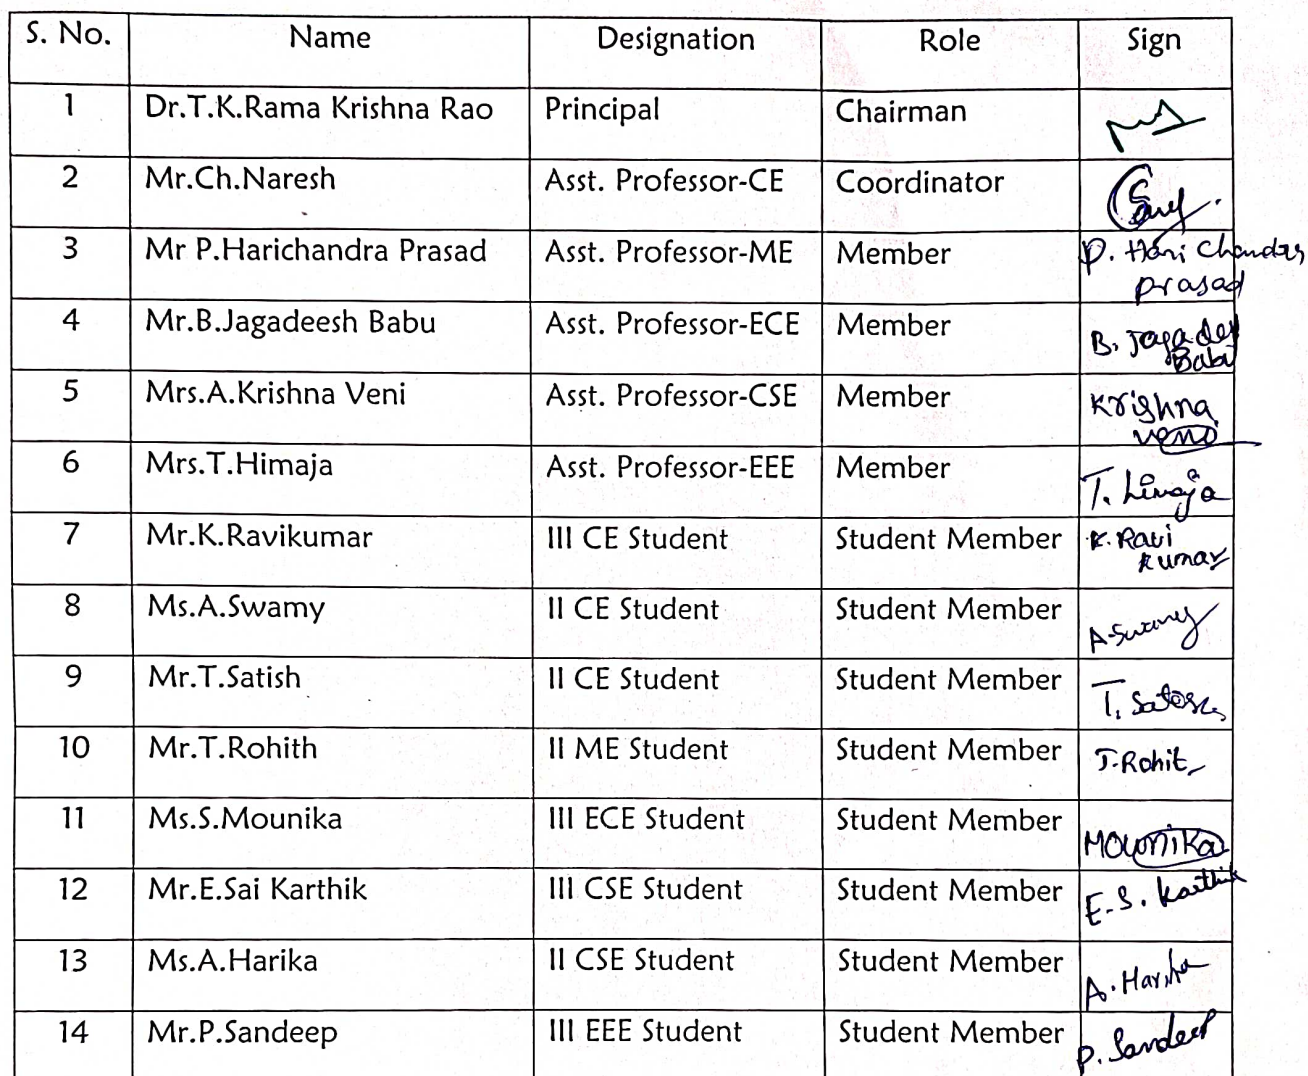 S. No. Name Designation Role Sign
1 Dr.T.K.Rama Krishna Rao Principal Chairman
2 Mr.Ch.Naresh Asst. Professor-CE Coordinator
3 Mr P.Harichandra Prasad Asst. Professor-ME Member P. Hari Chandra
prasad
4 Mr.B.Jagadeesh Babu Asst. Professor-ECE Member B. Jagadesh
Babu
5 Mrs.A.Krishna Veni Asst. Professor-CSE Member Krishna
veni
6 Mrs.T.Himaja Asst. Professor-EEE Member T. Himaja
7 Mr.K.Ravikumar III CE Student Student Member K. Ravi
kumar
8 Ms.A.Swamy II CE Student Student Member A.Swamy
9 Mr.T.Satish II CE Student Student Member T.
10 Mr.T.Rohith II ME Student Student Member T.Rohit
11 Ms.S.Mounika III ECE Student Student Member Mounika
12 Mr.E.Sai Karthik III CSE Student Student Member E.S. Karthik
13 Ms.A.Harika II CSE Student Student Member A. Harika
14 Mr.P.Sandeep III EEE Student Student Member P. Sandeep